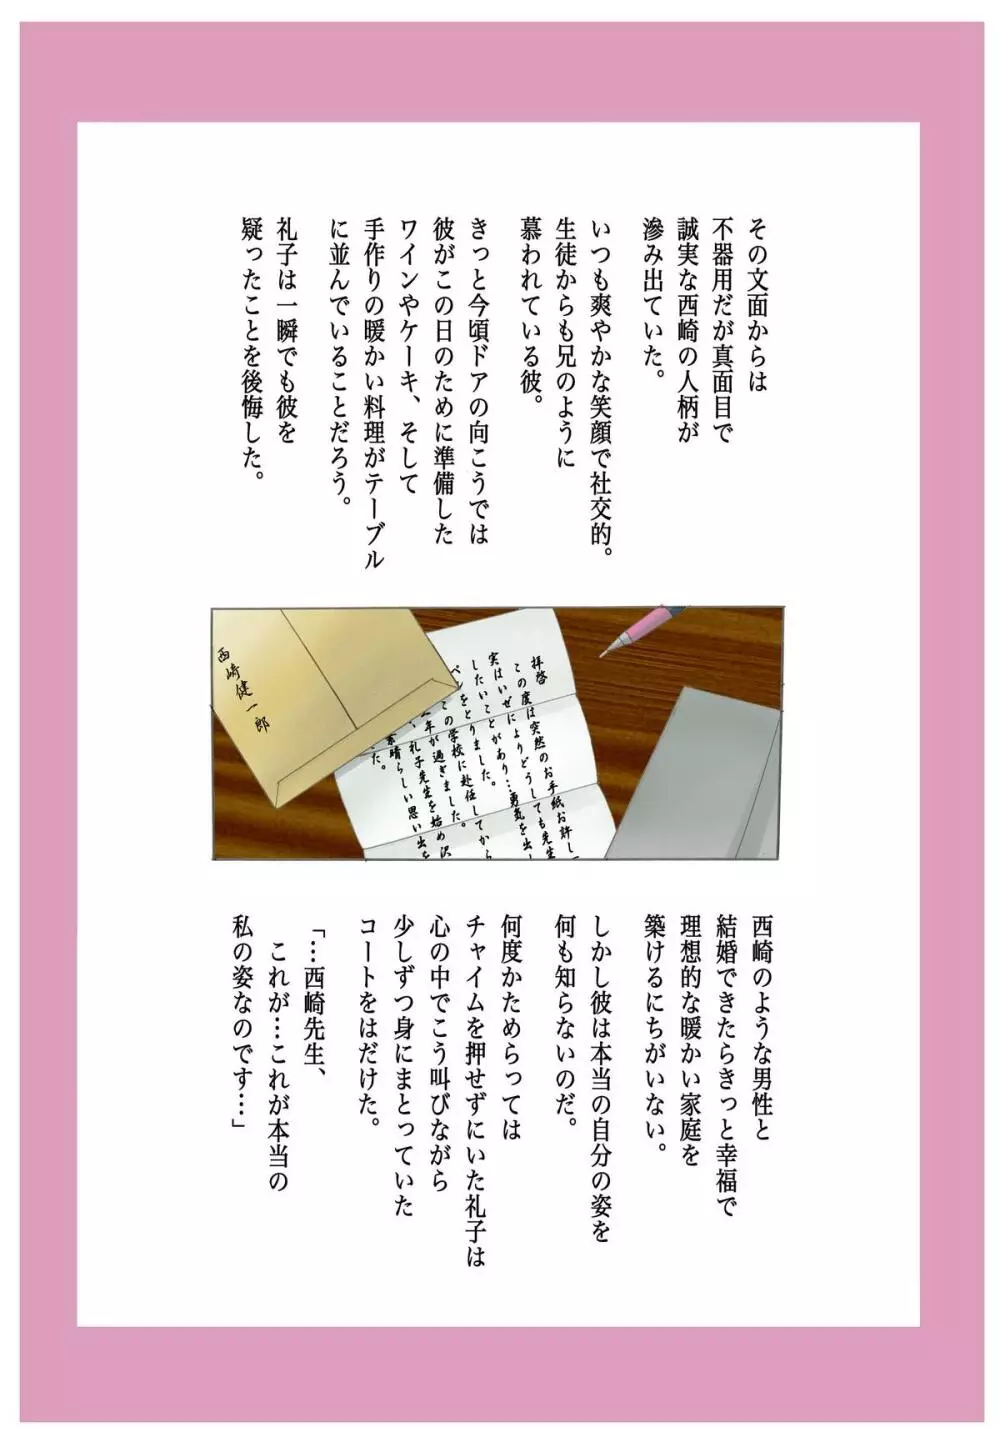 その文面からは
不器用だが真面目で
誠実な西崎の人柄が
滲み出ていた。
いつも爽やかな笑顔で社交的。
生徒からも兄のように
慕われている彼。
きっと今頃ドアの向こうでは
彼がこの日のために準備した
ワインやケーキ、そして
手作りの暖かい料理がテーブル
に並んでいることだろう。
礼子は一瞬でも彼を
疑ったことを後悔した。
拝啓
この度は突然のお手紙お許し
実はいぜによりどうしても先生
したいことがあり…勇気を出し
ペンをとりました。
この学校に赴任してから
年が過ぎました。
礼子先生を始め沢
素晴らしい思い出を
た。
西崎健一郎
西崎のような男性と
結婚できたらきっと幸福で
理想的な暖かい家庭を
築けるにちがいない。
しかし彼は本当の自分の姿を
何も知らないのだ。
何度かためらっては
チャイムを押せずにいた礼子は
心の中でこう叫びながら
少しずつ身にまとっていた
コートをはだけた。
「…西崎先生、
これが…これが本当の
私の姿なのです…」